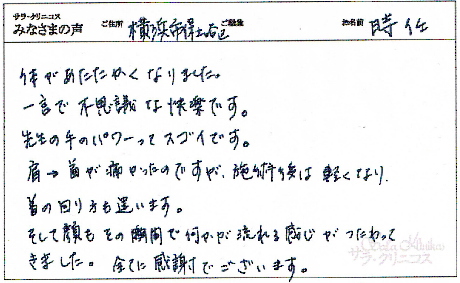 サラ・クリニコス
みなさまの声 ご住所 横浜市保土ヶ谷区 ご職業 お名前 時任
体があたたかくなりました。
一言で不思議な快楽です。
先生の手のパワーってスゴイです。
肩→首が痛かったのですが、施術後は軽くなり、
首の回り方も違います。
そして顔もその瞬間で何かが流れる感じがつたわって
きました。全てに感謝でございます。
サラ・クリニコス